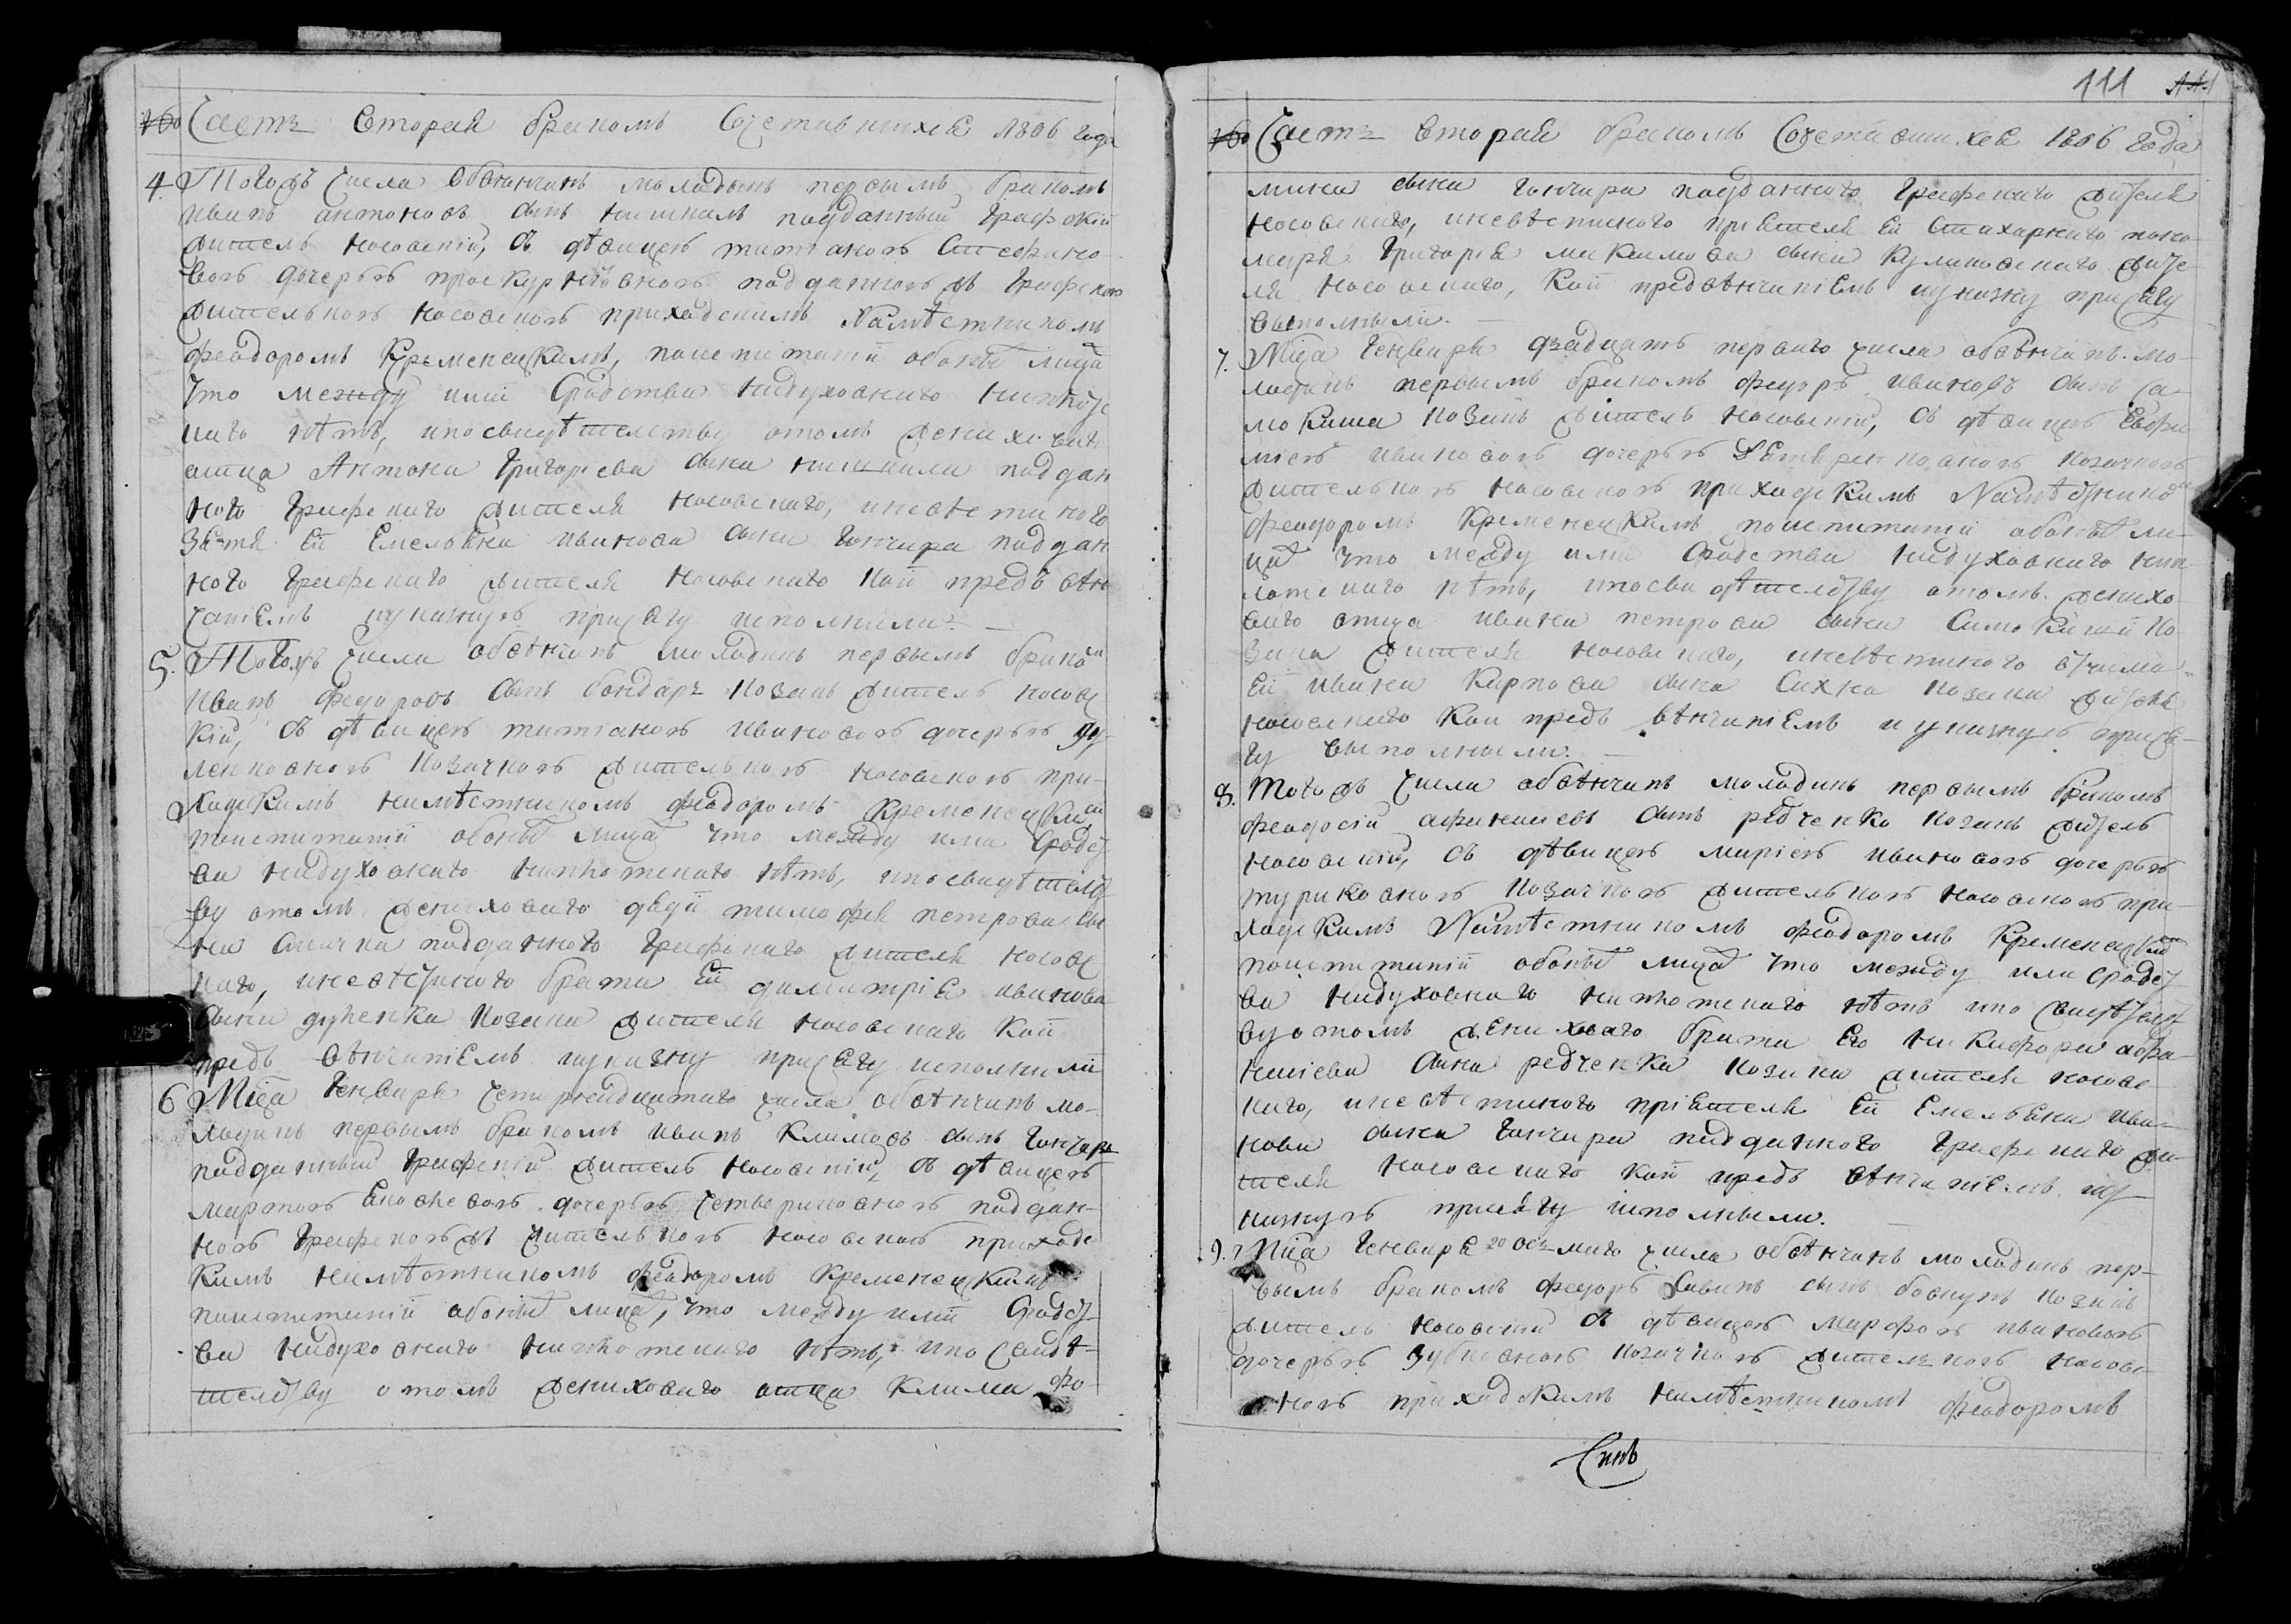 Часть вторая бракомъ сочетавшихся 1806 года
4. Тогожъ числа обвѣнчанъ молодынъ первымъ бракомъ
иванъ антоновъ сынъ подданный графскій
житель носовскій, съ дѣвицею татіаною стефано-
вою дочерью проскурнѣвною подданною жъ графскою
жителькою носовскою приходскимъ Намѣстникомъ
феодоромъ Кременецкимъ, поиспитаніи обоихъ лица
что между ими сродства нидуховнаго ниплоц
каго нѣтъ, ипосвидѣтельству отомъ жениховаго
отца Антона григорьева сына поддан
ного графскаго жителя носовскаго, иневѣстиного
зятя ей Емельяна иванова сына гончара поддан
ного графскаго жителя носовскаго кои предъ вѣн
чаніемъ указную присягу исполнили.
5. Тогожъ числа обвѣнчанъ молодинъ первымъ брако
иванъ федоровъ сынъ бондарь козакъ житель носовс
кій, съ дѣвицею татіаною ивановою дочерью ду-
ленковною козачкою жителькою носовскою при-
ходскимъ намѣстникомъ феодоромъ Кременецким
поиспитаніи обоихъ лица что между ими сродст
ва нидуховнаго ниплотскаго нѣтъ, ипосвидѣтелст
ву отомъ жениховаго дяди тимофея петрова сы
на подданного графскаго жителя носовс
каго, иневѣстиного брата ей димитрія иванова
сына козака жителя носовскаго кои
предъ вѣнчаніемъ указну присягу исполнили
6 Мца генваря четырнадцатаго числа обвѣнчанъ мо-
лодинъ первымъ бракомъ иванъ Климовъ сынъ гончаръ
подданный графскій житель носовскій, съ дѣвицею
мартою дочерью четвериковною поддан-
ною графскою жъ жителькою носовскою приходс
кимъ намѣстникомъ феодоромъ Кременецкимъ
поиспитаніи обоихъ лица, что между ими сродст
ва нидуховнаго ниплотскаго нѣтъ, ипосвидѣ-
телству отомъ жениховаго отца Клима фо-
111
Часть вторая бракомъ сочетавшихся 1806 года
мина сына гончара подданного графскаго жителя
носовскаго, иневѣстиного пріятеля ей стихарнаго поно-
маря григорія максимова сына Куликовскаго жите-
ля носовскаго, кои предвѣнчаніемъ указну присягу
выполнили.
7. Мца генваря двадцать перваго числа обвѣнчанъ мо-
лодинъ первымъ бракомъ федоръ ивановъ сынъ са-
мокиша козакъ житель носовскій, съ дѣвицею Евфи
міею ивановою дочерью козачкою
жителькою носовскою приходскимъ Намѣстнико
феодоромъ Кременецкимъ поиспитаніи обоихъ ли-
ца что между ими сродства нидуховнаго нип-
лотскаго нѣтъ, ипосвидѣтелству отомъ женихо
ваго отца ивана петрова сына самокиши ко-
зака жителя носовскаго, иневѣстиного отчима
ей ивана Карпова сына козака жителя
носовскаго кои предъ вѣнчаніемъ и указную прися-
гу выполнили.
8. Тогожъ числа обвѣнчанъ молодинъ первымъ бракомъ
феодосій афанасиевъ сынъ редченко козакъ житель
носовскій, съ дѣвицею маріею ивановою дочерью
козачкою жителькою носовскою при-
ходскимъ Намѣстникомъ феодоромъ Кременецким
поиспитаніи обоихъ лица что между ими сродст
ва нидуховнаго ниплотскаго нѣтъ ипосвидѣтелст
ву отомъ жениховаго брата его никифора афа-
насіева сына редченка козака жителя носовс
каго, иневѣстиного пріятеля ей Емельяна ива-
нова сына гончара подданного графскаго жи-
теля носовскаго кои предъ вѣнчаніемъ ука-
зную присягу исполнили.
9. Мца генваря 20 осмаго числа обвѣнчанъ молодинъ пер-
вымъ бракомъ федоръ савинъ сынъ бовкунъ козакъ
житель носовскій съ дѣвицею марфою ивановою
дочерью козачкою жителкою носовс
кою приходскимъ намѣстникомъ феодоромъ